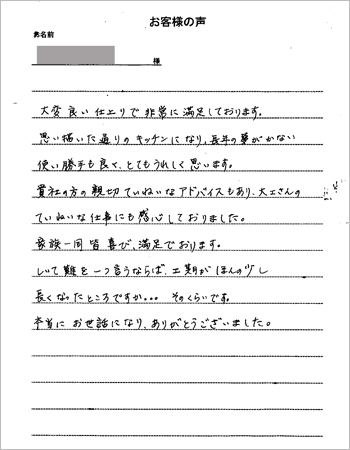 お客様の声
お名前
様
大変良い仕上りで非常に満足しております。
思い描いた通りのキッチンになり、長年の夢がかない
使い勝手も良く、とてもうれしく思います。
貴社の方の親切ていねいなアドバイスもあり、大工さんの
ていねいな仕事にも感心しておりました。
家族一同皆喜び、満足でおります。
しいて難を一つ言うならば、工期がほんの少し
長くなったところですか。。。 そのくらいです。
本当にお世話になり、ありがとうございました。